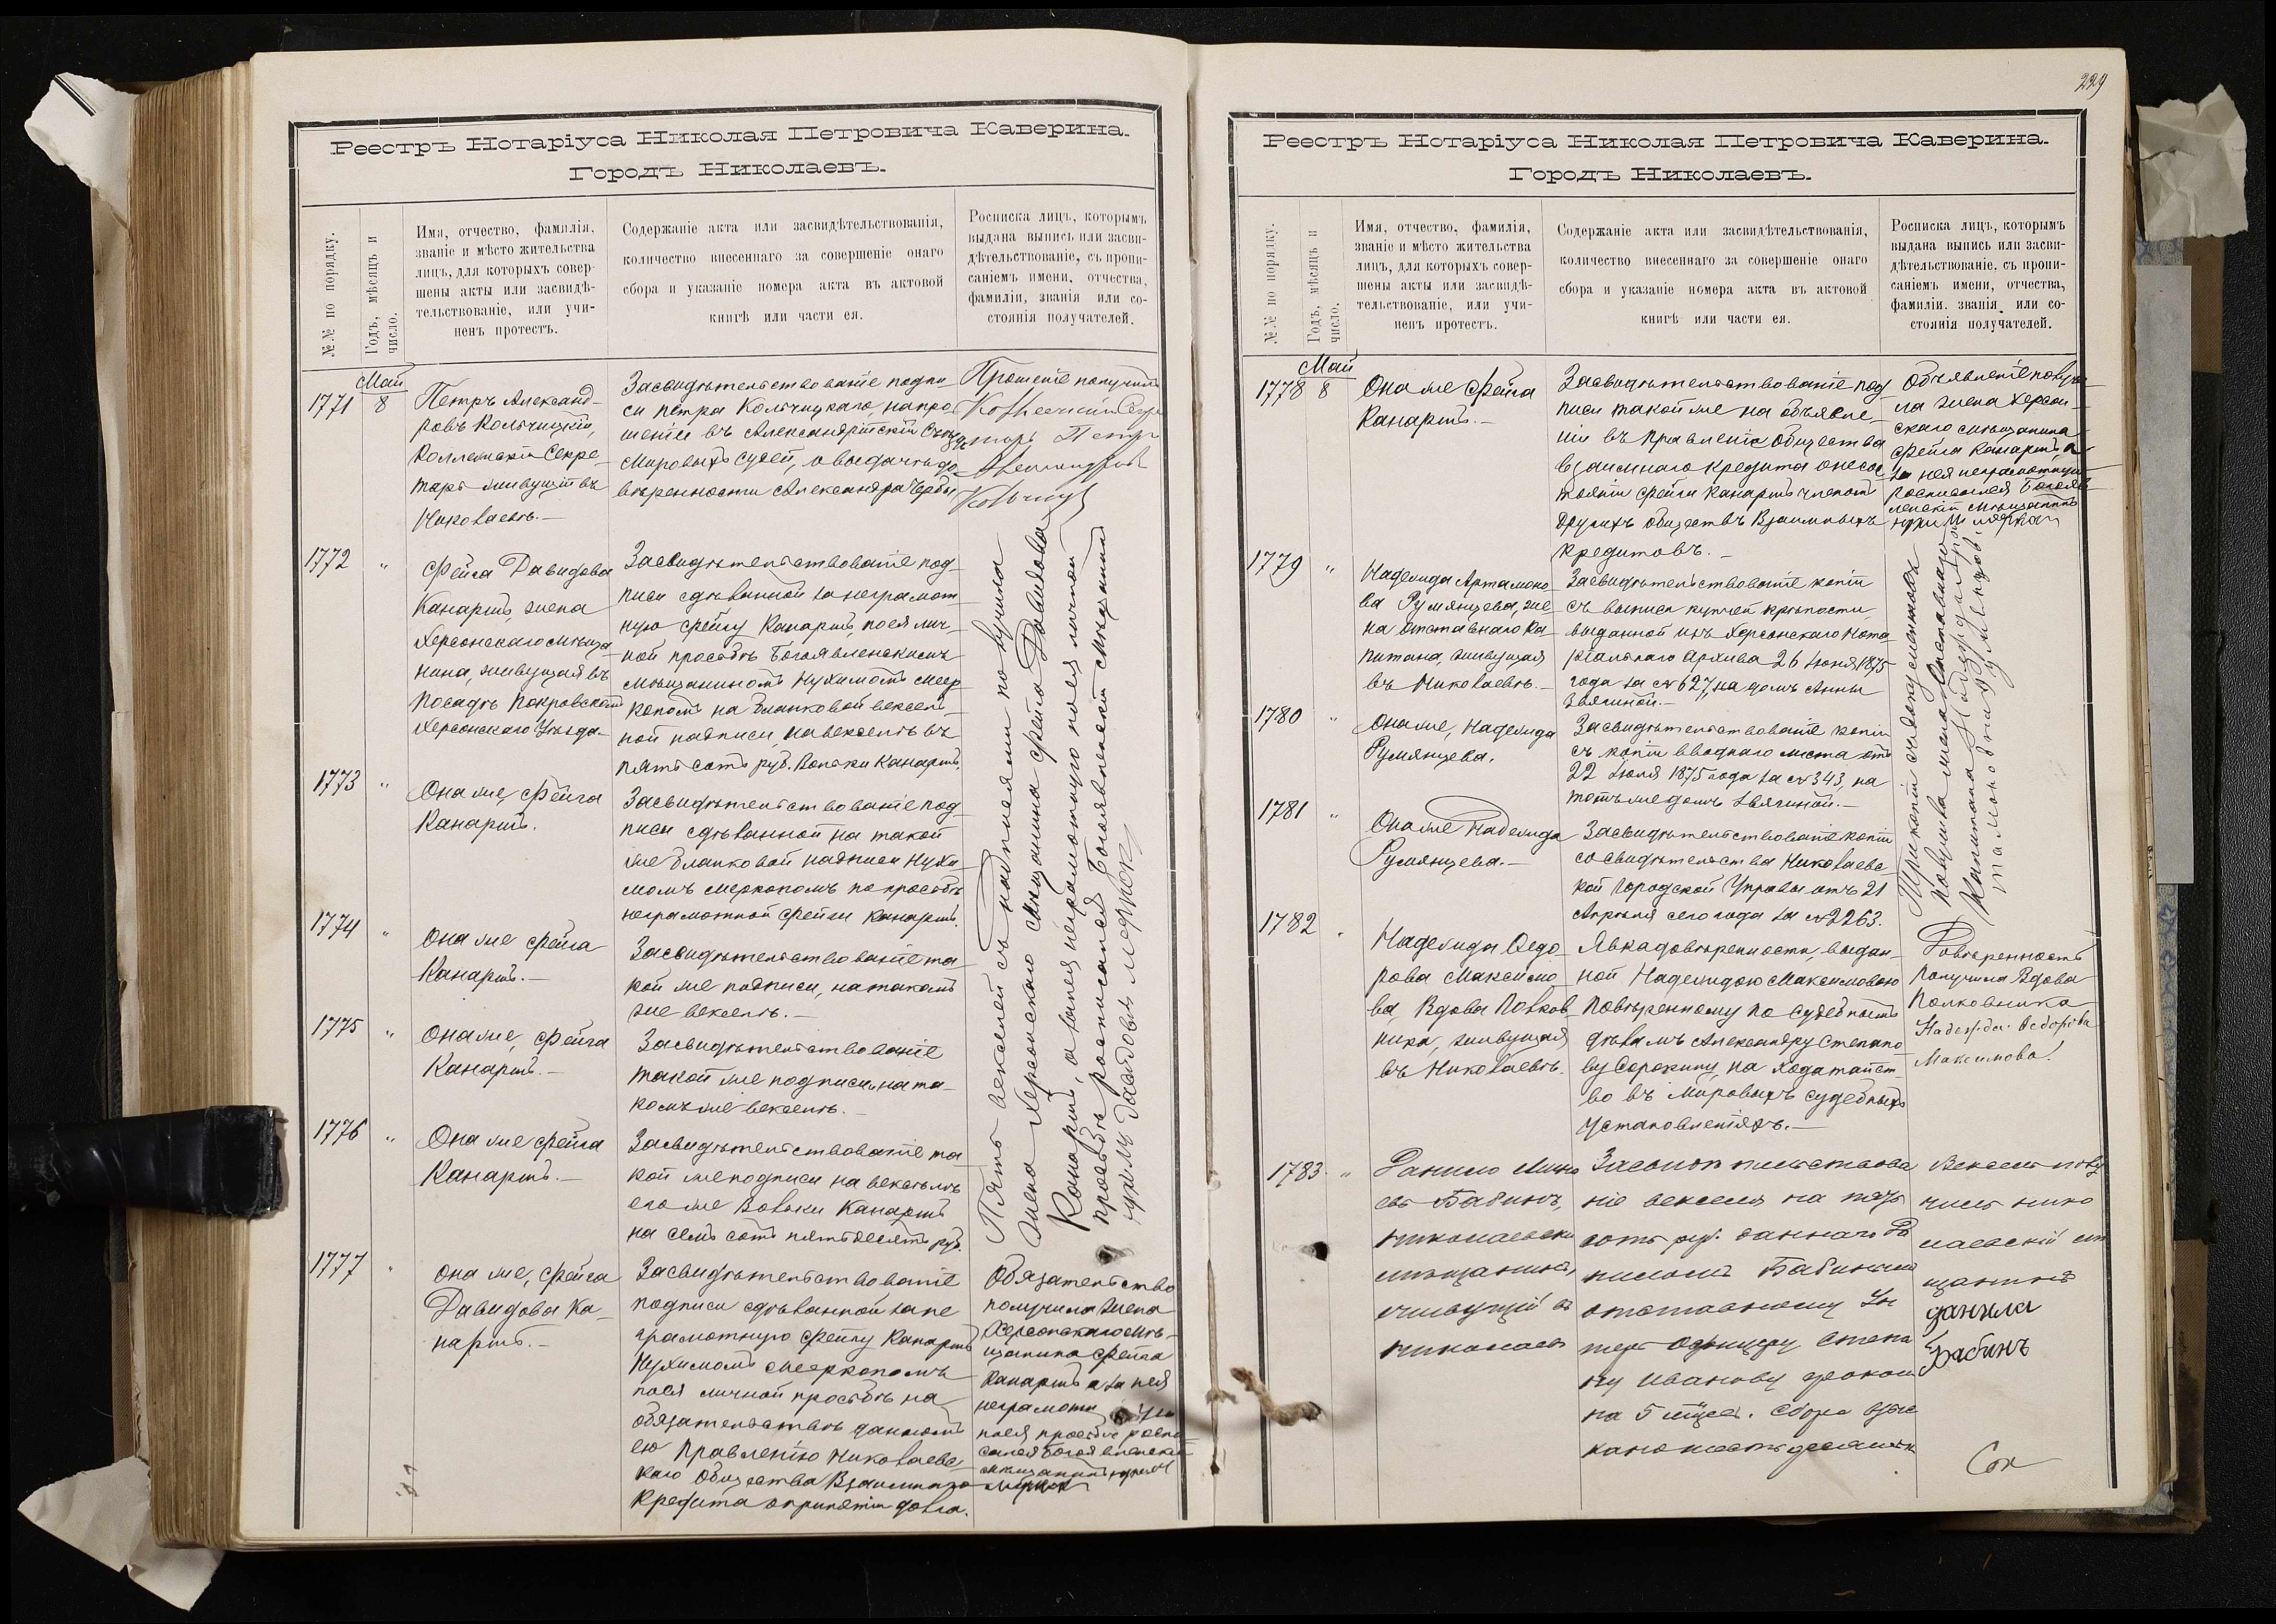 229
Реестръ Нотаріуса Николая Петровича Каверина.
Городъ Николаевъ.
№№ по порядку.
Годъ, мѣсяцъ и
число.
Имя, отчество, фамилія,
званіе и мѣсто жительства
лицъ, для которыхъ совер-
шены акты или засвидѣ-
тельствованіе, или учи-
ненъ протестъ.
Содержаніе акта или засвидѣтельствованія,
количество внесеннаго за совершеніе онаго
сбора и указаніе номера акта въ актовой
книгѣ или части ея.
Росписка лицъ, которымъ
выдана выпись или засви-
дѣтельствованіе, съ пропи-
саніемъ имени, отчества,
фамиліи, званія или со-
стоянія получателей.
Май
1771 8
Петръ Александ-
ровъ Кольчицкій,
Коллежскій Секре-
тарь живущій въ
Николаевѣ.—
Засвидѣтельствованіе подпи-
си Петра Кольчицкаго, на про-
шеніи въ Александрійскій Съѣздъ
Мировыхъ Судей, о выдачѣ до-
вѣренности Александра
Прошеніе получилъ
Петръ
1772 "
Фейга Давидова
Канаршъ, жена
Херсонскаго мѣща-
нина, живущая въ
посадѣ Покровскомъ
Херсонскаго Уѣзда—
Засвидѣтельствованіе под-
писи сдѣланной за неграмот-
ную Фейгу Канаршъ, по ея лич-
ной просьбѣ Богоявленскимъ
мѣщаниномъ Нухимомъ Меер-
кономъ на бланковой вексель-
ной надписи, на векселѣ въ
пятьсотъ руб. Вольки Канаршъ.
1773 "
Она же, Фейга
Канаршъ.
Засвидѣтельствованіе под-
писи сдѣланной на такой
же бланковой надписи Нухи-
момъ Меркономъ по просьбѣ
неграмотной Фейги Канаршъ.
1774 "
Она же Фейга
Канаршъ.—
Засвидѣтельствованіе та-
кой же подписи, на такомъ
же векселѣ.—
1775 "
Она же, Фейга
Канаршъ.—
Засвидѣтельствованіе
такой же подписи, на та-
комъ же векселѣ.—
1776 "
Она же Фейга
Канаршъ.—
Засвидѣтельствованіе та-
кой же подписи на векселѣ
его же Вольки Канаршъ
на семь сотъ пятьдесятъ руб.
Пять векселей съ надписями получила
жена Херсонскаго мѣщанина Фейга Давидова
Канаршъ, а за нея неграмотную по ея личной
просьбѣ росписался Богоявленскій мѣщанинъ
1777 "
Она же, Фейга
Давидова Ка-
наршъ.—
Засвидѣтельствованіе
подписи сдѣланной за не
грамотную Фейгу Канаршъ
Нухимомъ Мееркономъ
по ея личной просьбѣ на
обязательствѣ данномъ
ею Правленію Николаевс-
каго Общества Взаимнаго
Кредита о принятіи долга.
Обязательство
получила жена
Херсонскаго мѣ-
щанина Фейга
Канаршъ а за нея
по ея просьбѣ роспи-
сался Богоявленскій
мѣщанинъ
Реестръ Нотаріуса Николая Петровича Каверина.
Городъ Николаевъ.
№№ по порядку.
Годъ, мѣсяцъ и
число.
Имя, отчество, фамилія,
званіе и мѣсто жительства
лицъ, для которыхъ совер-
шены акты или засвидѣ-
тельствованіе, или учи-
ненъ протестъ.
Содержаніе акта или засвидѣтельствованія,
количество внесеннаго за совершеніе онаго
сбора и указаніе номера акта въ актовой
книгѣ или части ея.
Росписка лицъ, которымъ
выдана выпись или засви-
дѣтельствованіе, съ пропи-
саніемъ имени, отчества,
фамиліи, званія или со-
стоянія получателей.
Май
1778 8
Она же Фейга
Канаршъ.—
Засвидѣтельствованіе под-
писи такой же на объявле-
ніи въ правленіе Общества
взаимнаго кредита о несос-
тояніи Фейги Канаршъ членомъ
другихъ обществъ Взаимныхъ
кредитовъ.—
Объявленіе получи-
ла жена Херсон-
скаго мѣщанина
Фейга Канаршъ, а
за нея неграмотную
росписался Богояв-
ленскій мѣщанинъ
1779 "
Надежда Артамоно-
ва Румянцева, же-
на отставнаго Ка-
питана, живущая
въ Николаевѣ.—
Засвидѣтельствованіе копіи
съ выписи купчей крѣпости,
выданной изъ Херсонскаго Нота-
ріальнаго Архива 26 Іюня 1875
года за № 627, на домъ Анны
Звягиной.—
1780 "
Она же, Надежда
Румянцева.
Засвидѣтельствованіе копіи
съ копіи вводнаго листа отъ
22 Іюля 1875 года за № 343, на
тотъ же домъ Звягиной.—
1781 "
Она же Надежда
Румянцева.—
Засвидѣтельствованіе копіи
со свидѣтельства Николаевс-
кой Городской Управы отъ 21
Апрѣля сего года за № 2263.
Три копіи съ документовъ
получила жена Отставнаго
Капитана Надежда Ар
тамонова Румянцова
1782 "
Надежда Ѳедо-
рова Максимо-
ва, Вдова Полков-
ника, живущая
въ Николаевѣ.
Явка довѣренности, выдан-
ной Надеждою Максимовою
Повѣренному по судебнымъ
дѣламъ Александру Степано-
ву Сорокину, на ходатайст-
во въ Мировыхъ судебныхъ
установленіяхъ.—
Довѣренность
получила Вдова
Полковника
Надежда Ѳедорова
Максимова.
1783 "
Данило
евъ Бабинъ,
николаевскій
мѣщанинъ,
живущій въ
николаевѣ
Засвидѣтельствова
ніе векселя на пять
сотъ руб. даннаго Да
ниломъ Бабинымъ
отставному Ун
теръ Офицеру Степа
ну Иванову срокомъ
на 5 мѣсяц. Сбора взыс
кано шестьдесятъ к
Вексель полу
чилъ нико
лаевскій мѣ
щанинъ
данила
Бабинъ